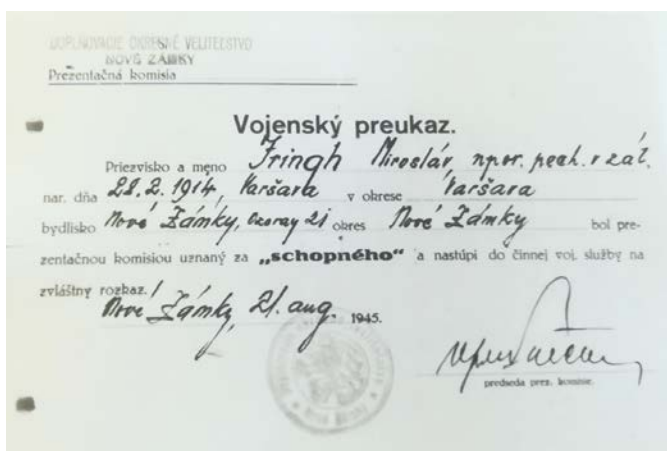 DOPLŇOVACIE OKRESNÉ VELITEĽSTVO
NOVÉ ZÁMKY
Prezentačná komisia
Vojenský preukaz.
Priezvisko a meno Fringh Mirosláv, npor. pech. v zál.
nar. dňa 22.2.1914, Varšava v okrese Varšava
bydlisko Nové Zámky, 21 okres Nové Zámky bol pre-
zentačnou komisiou uznaný za „schopného“ a nastúpi do činnej voj. služby na
zvláštny rozkaz!
Nové Zámky, 21. aug. 1945.
predseda prez. komisie.